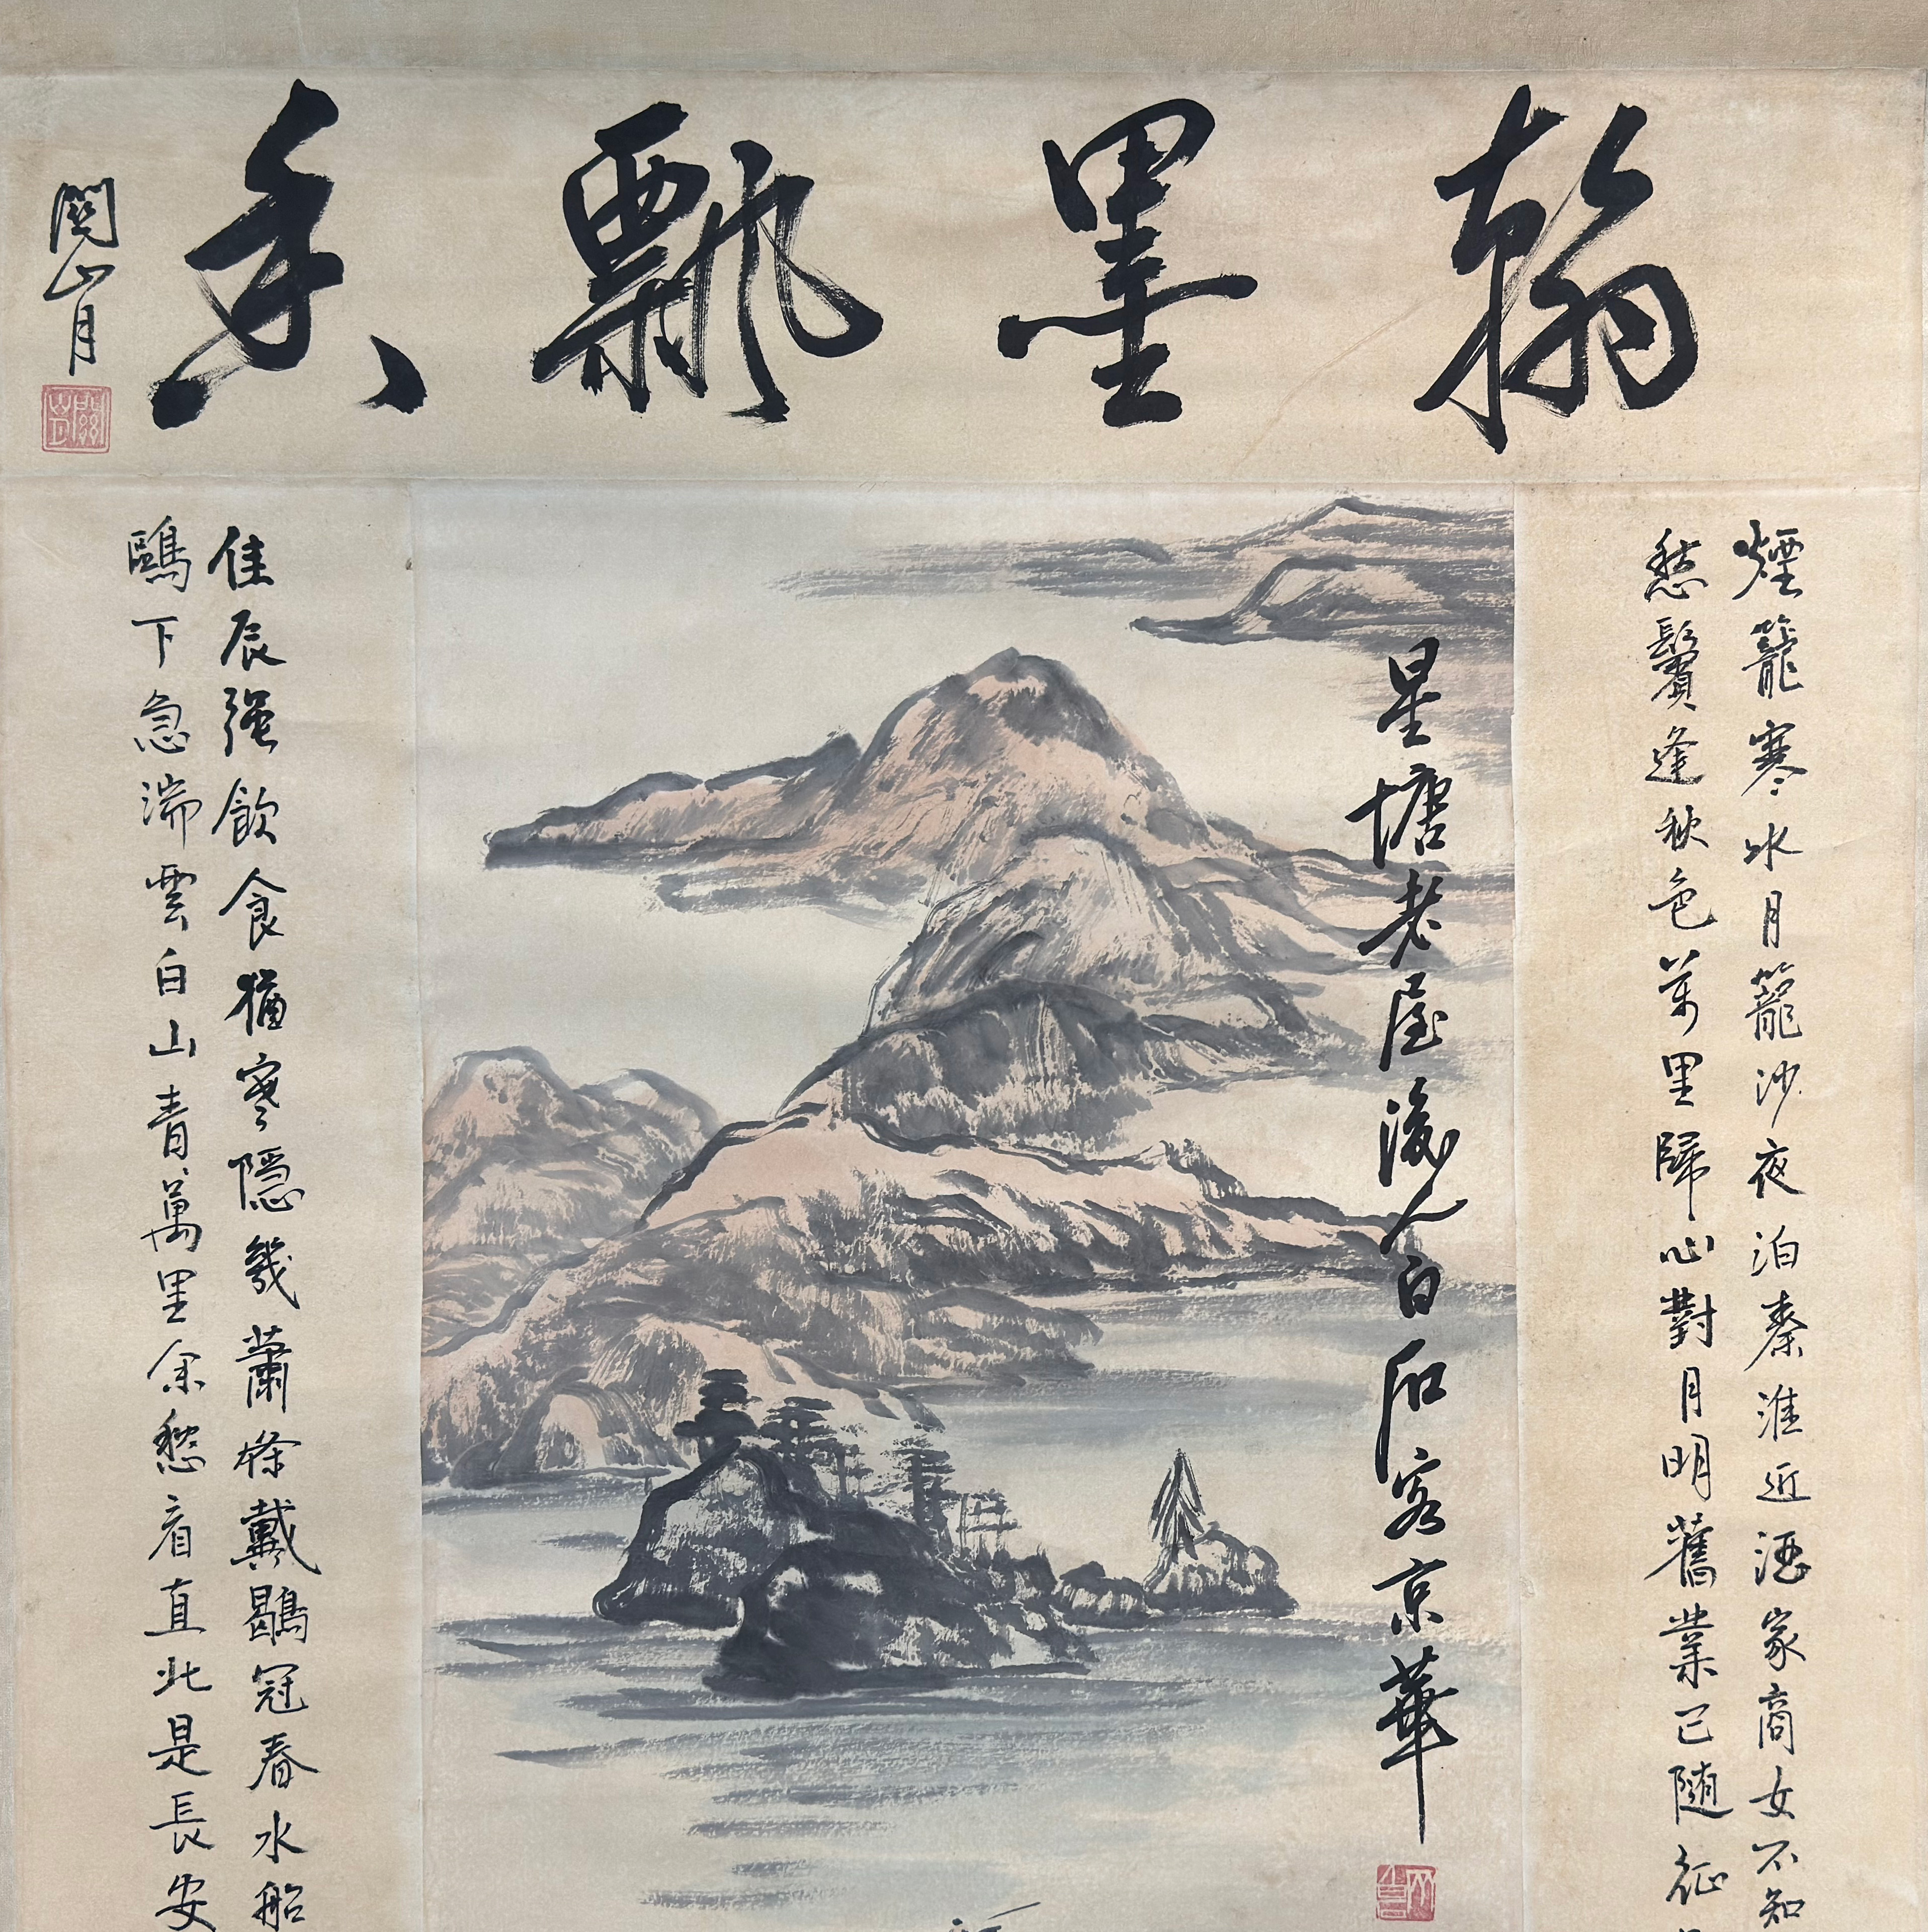 翰墨飄香
關山月
煙籠寒水月籠沙夜泊秦淮近酒家商女不知
愁鬢逢秋色萬里歸心對月明舊業已隨征
星塘老屋後人白石客京華
佳辰強飲食猶寒隱幾蕭條戴鶡冠春水船
鷗下急湍雲白山青萬里余愁看直北是長安